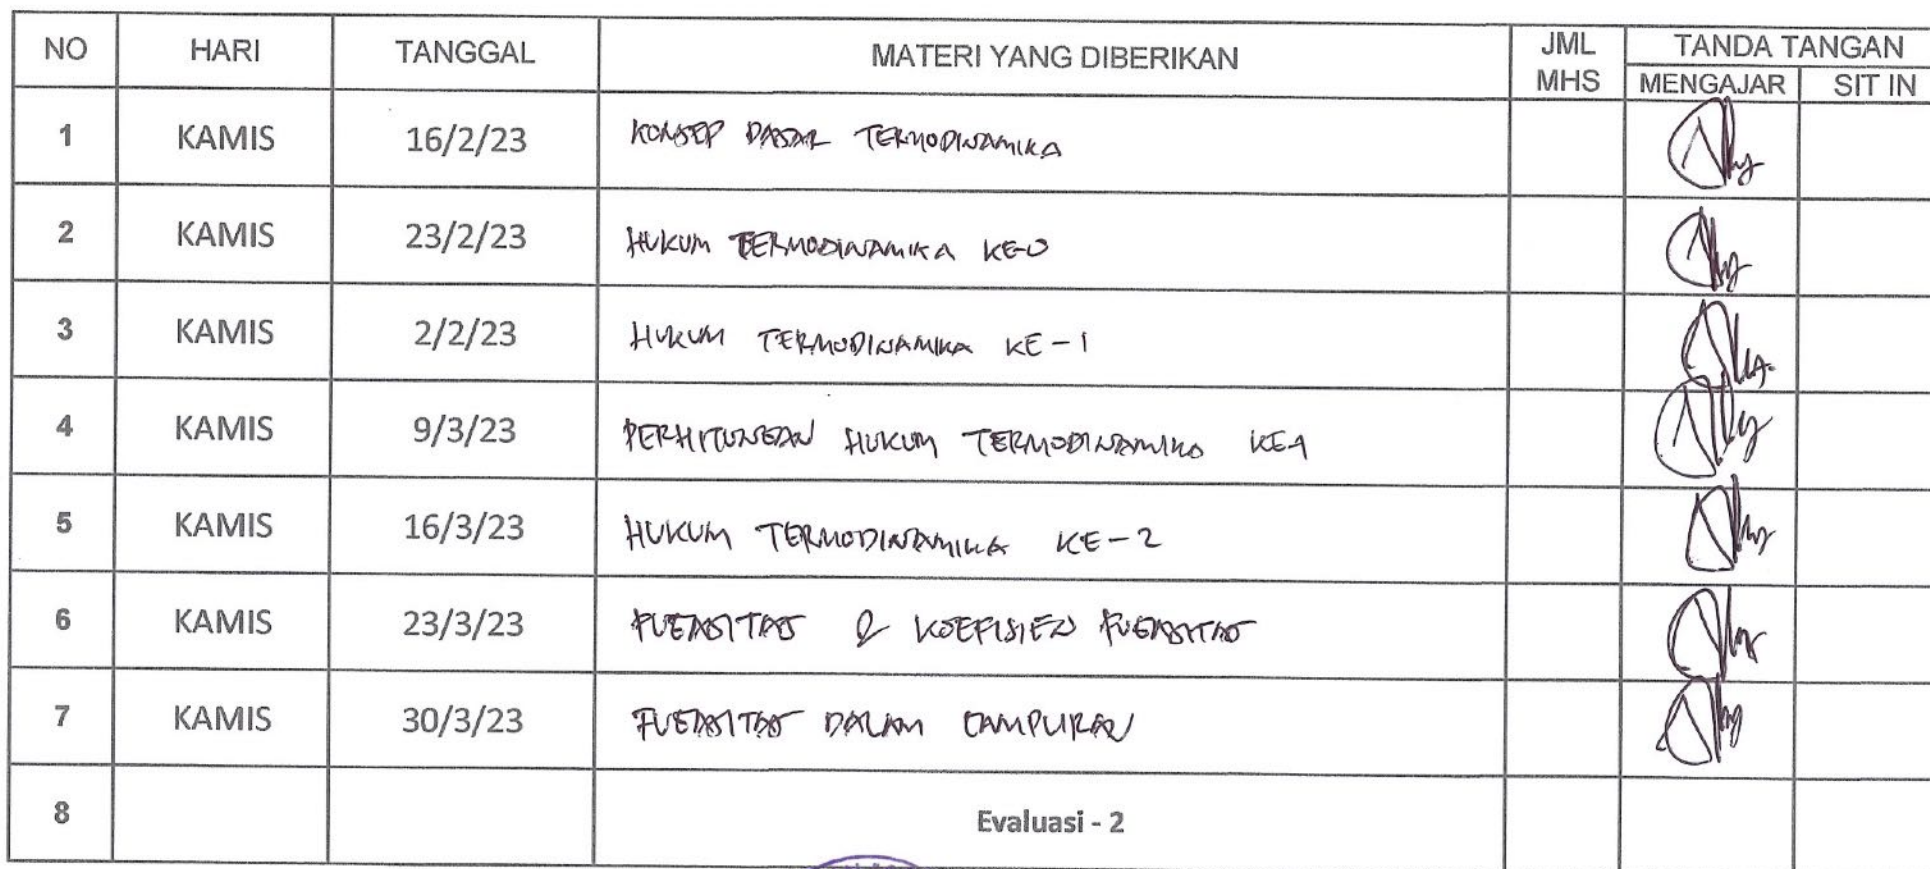 NO HARI TANGGAL MATERI YANG DIBERIKAN JML MHS TANDA TANGAN
MENGAJAR SIT IN
1 KAMIS 16/2/23 KONSEP DASAR TERMODINAMIKA
2 KAMIS 23/2/23 HUKUM TERMODINAMIKA KE-0
3 KAMIS 2/2/23 HUKUM TERMODINAMIKA KE-1
4 KAMIS 9/3/23 PERHITUNGAN HUKUM TERMODINAMIKA KE1
5 KAMIS 16/3/23 HUKUM TERMODINAMIKA KE-2
6 KAMIS 23/3/23 FUGASITAS & KOEFISIEN FUGASITAS
7 KAMIS 30/3/23 FUGASITAS DALAM CAMPURAN
8 Evaluasi - 2